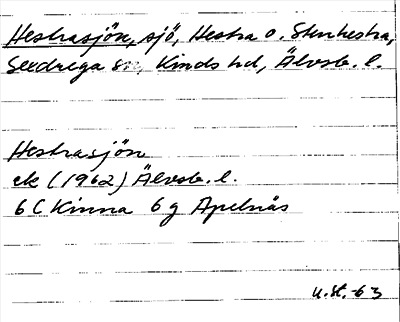 Hestrasjön, sjö, Hestra o. Stenhestra,
Seedrega sn, Kinds hd, Älvsb. l.
Hestrasjön
ek (1962) Älvsb. l.
6 C Kinna 6 g Apelnäs
u.st.-63